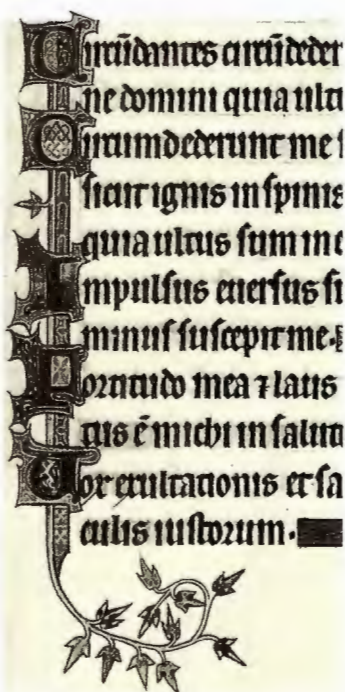 Circūdantes circūdeder
ne domini quia ulti
Circumdederunt me
sicut ignis in spinis
quia ultus sum in e
Impulsus euersus su
minus suscepit me.
Fortitudo mea ⁊ laus
ctus ē michi in salute
Uox exultationis et sa
culis iustorum.